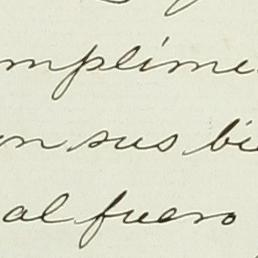 mplime
on sus bi
al fuero